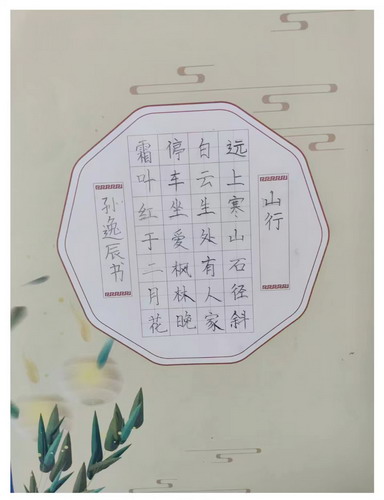 山行
远上寒山石径斜
白云生处有人家
停车坐爱枫林晚
霜叶红于二月花
孙逸辰书